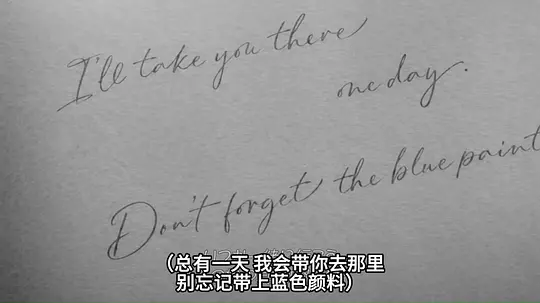 I'll take you there
one day.
Don't forget the blue paint
(总有一天 我会带你去那里
别忘记带上蓝色颜料)